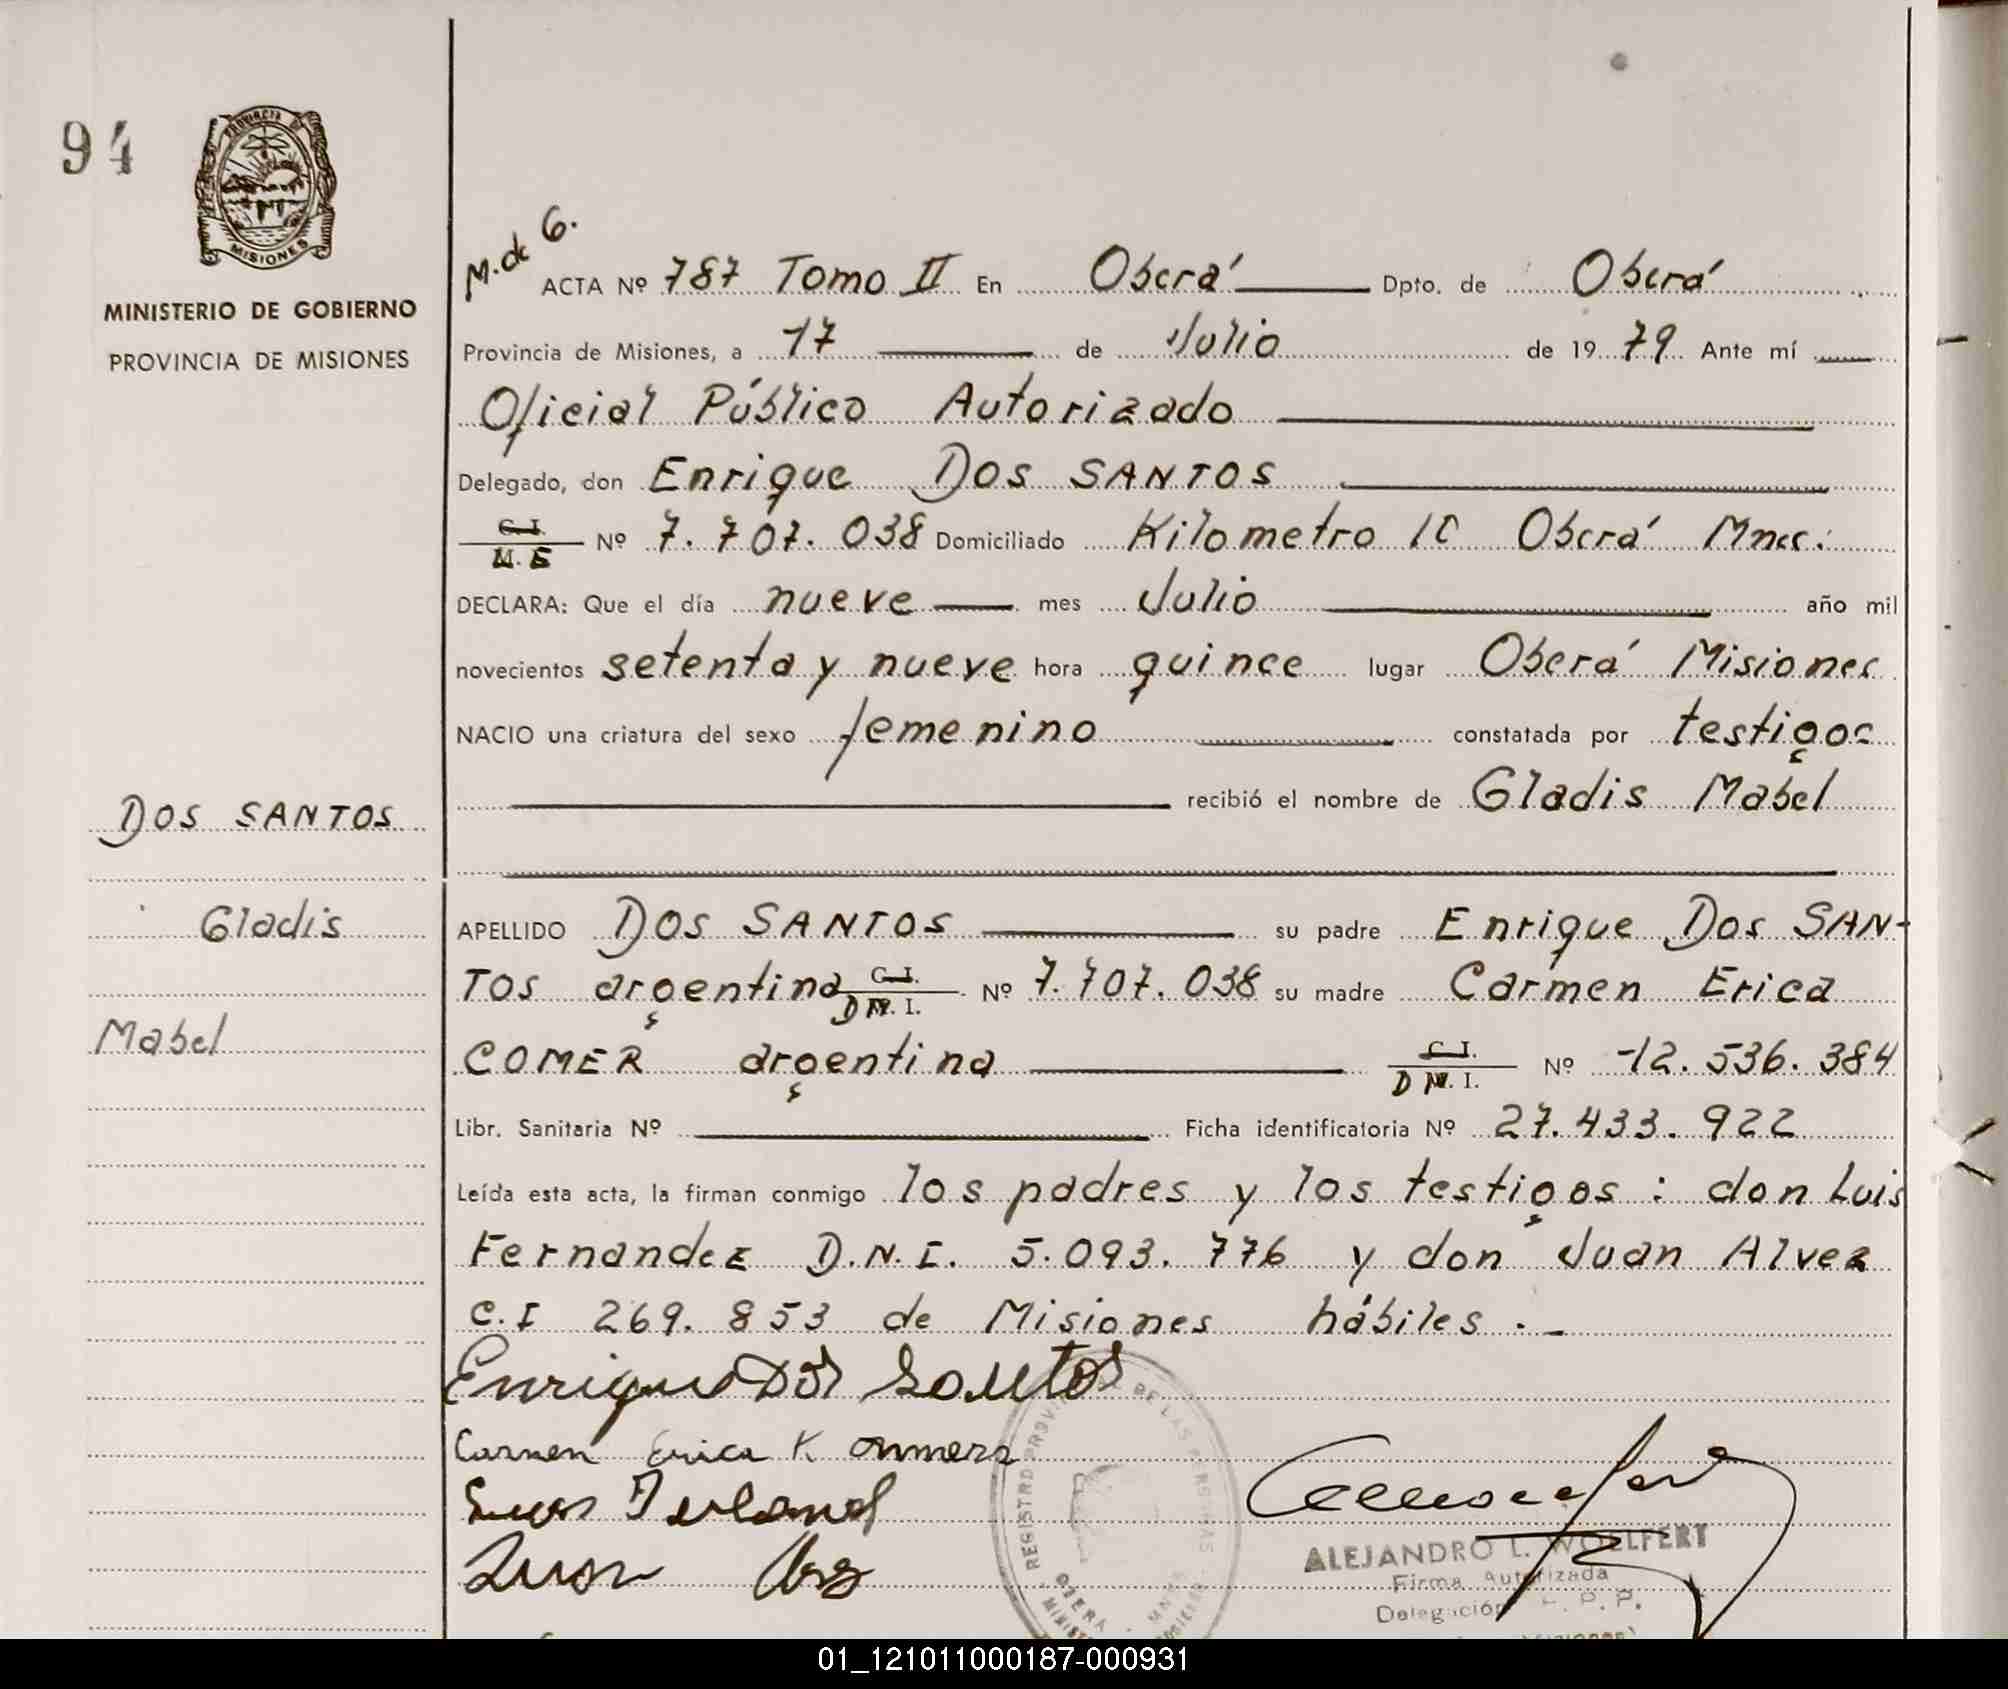 94
PROVINCIA DE
MISIONES
MINISTERIO DE GOBIERNO
PROVINCIA DE MISIONES
M. de G.
ACTA Nº 787 Tomo II En Oberá Dpto. de Oberá
Provincia de Misiones, a 17 de Julio de 1979 Ante mí
Oficial Público Autorizado
Delegado, don Enrique DOS SANTOS
C. I.
M. E Nº 7.707.038 Domiciliado Kilometro 10 Oberá Mnes.
DECLARA: Que el día nueve mes Julio año mil
novecientos setenta y nueve hora quince lugar Oberá Misiones
NACIO una criatura del sexo femenino constatada por testigos
recibió el nombre de Gladis Mabel
DOS SANTOS
Gladis
Mabel
APELLIDO DOS SANTOS su padre Enrique DOS SAN-
TOS argentina C. I.
D N. I. Nº 7.707.038 su madre Carmen Erica
COMER argentina C. I.
D N. I. Nº 12.536.384
Libr. Sanitaria Nº Ficha identificatoria Nº 27.433.922
Leída esta acta, la firman conmigo los padres y los testigos: don Luis
Fernandez D.N.I. 5.093.776 y don Juan Alvez
C.I 269.853 de Misiones hábiles.
Enrique Dos Santos
Carmen Erica K
Juan
REGISTRO PROVINCIAL DE LAS PERSONAS
OBERA
MNES
ALEJANDRO L. WOELFERT
Firma Autorizada
Delegación R. P. P.
01_121011000187-000931